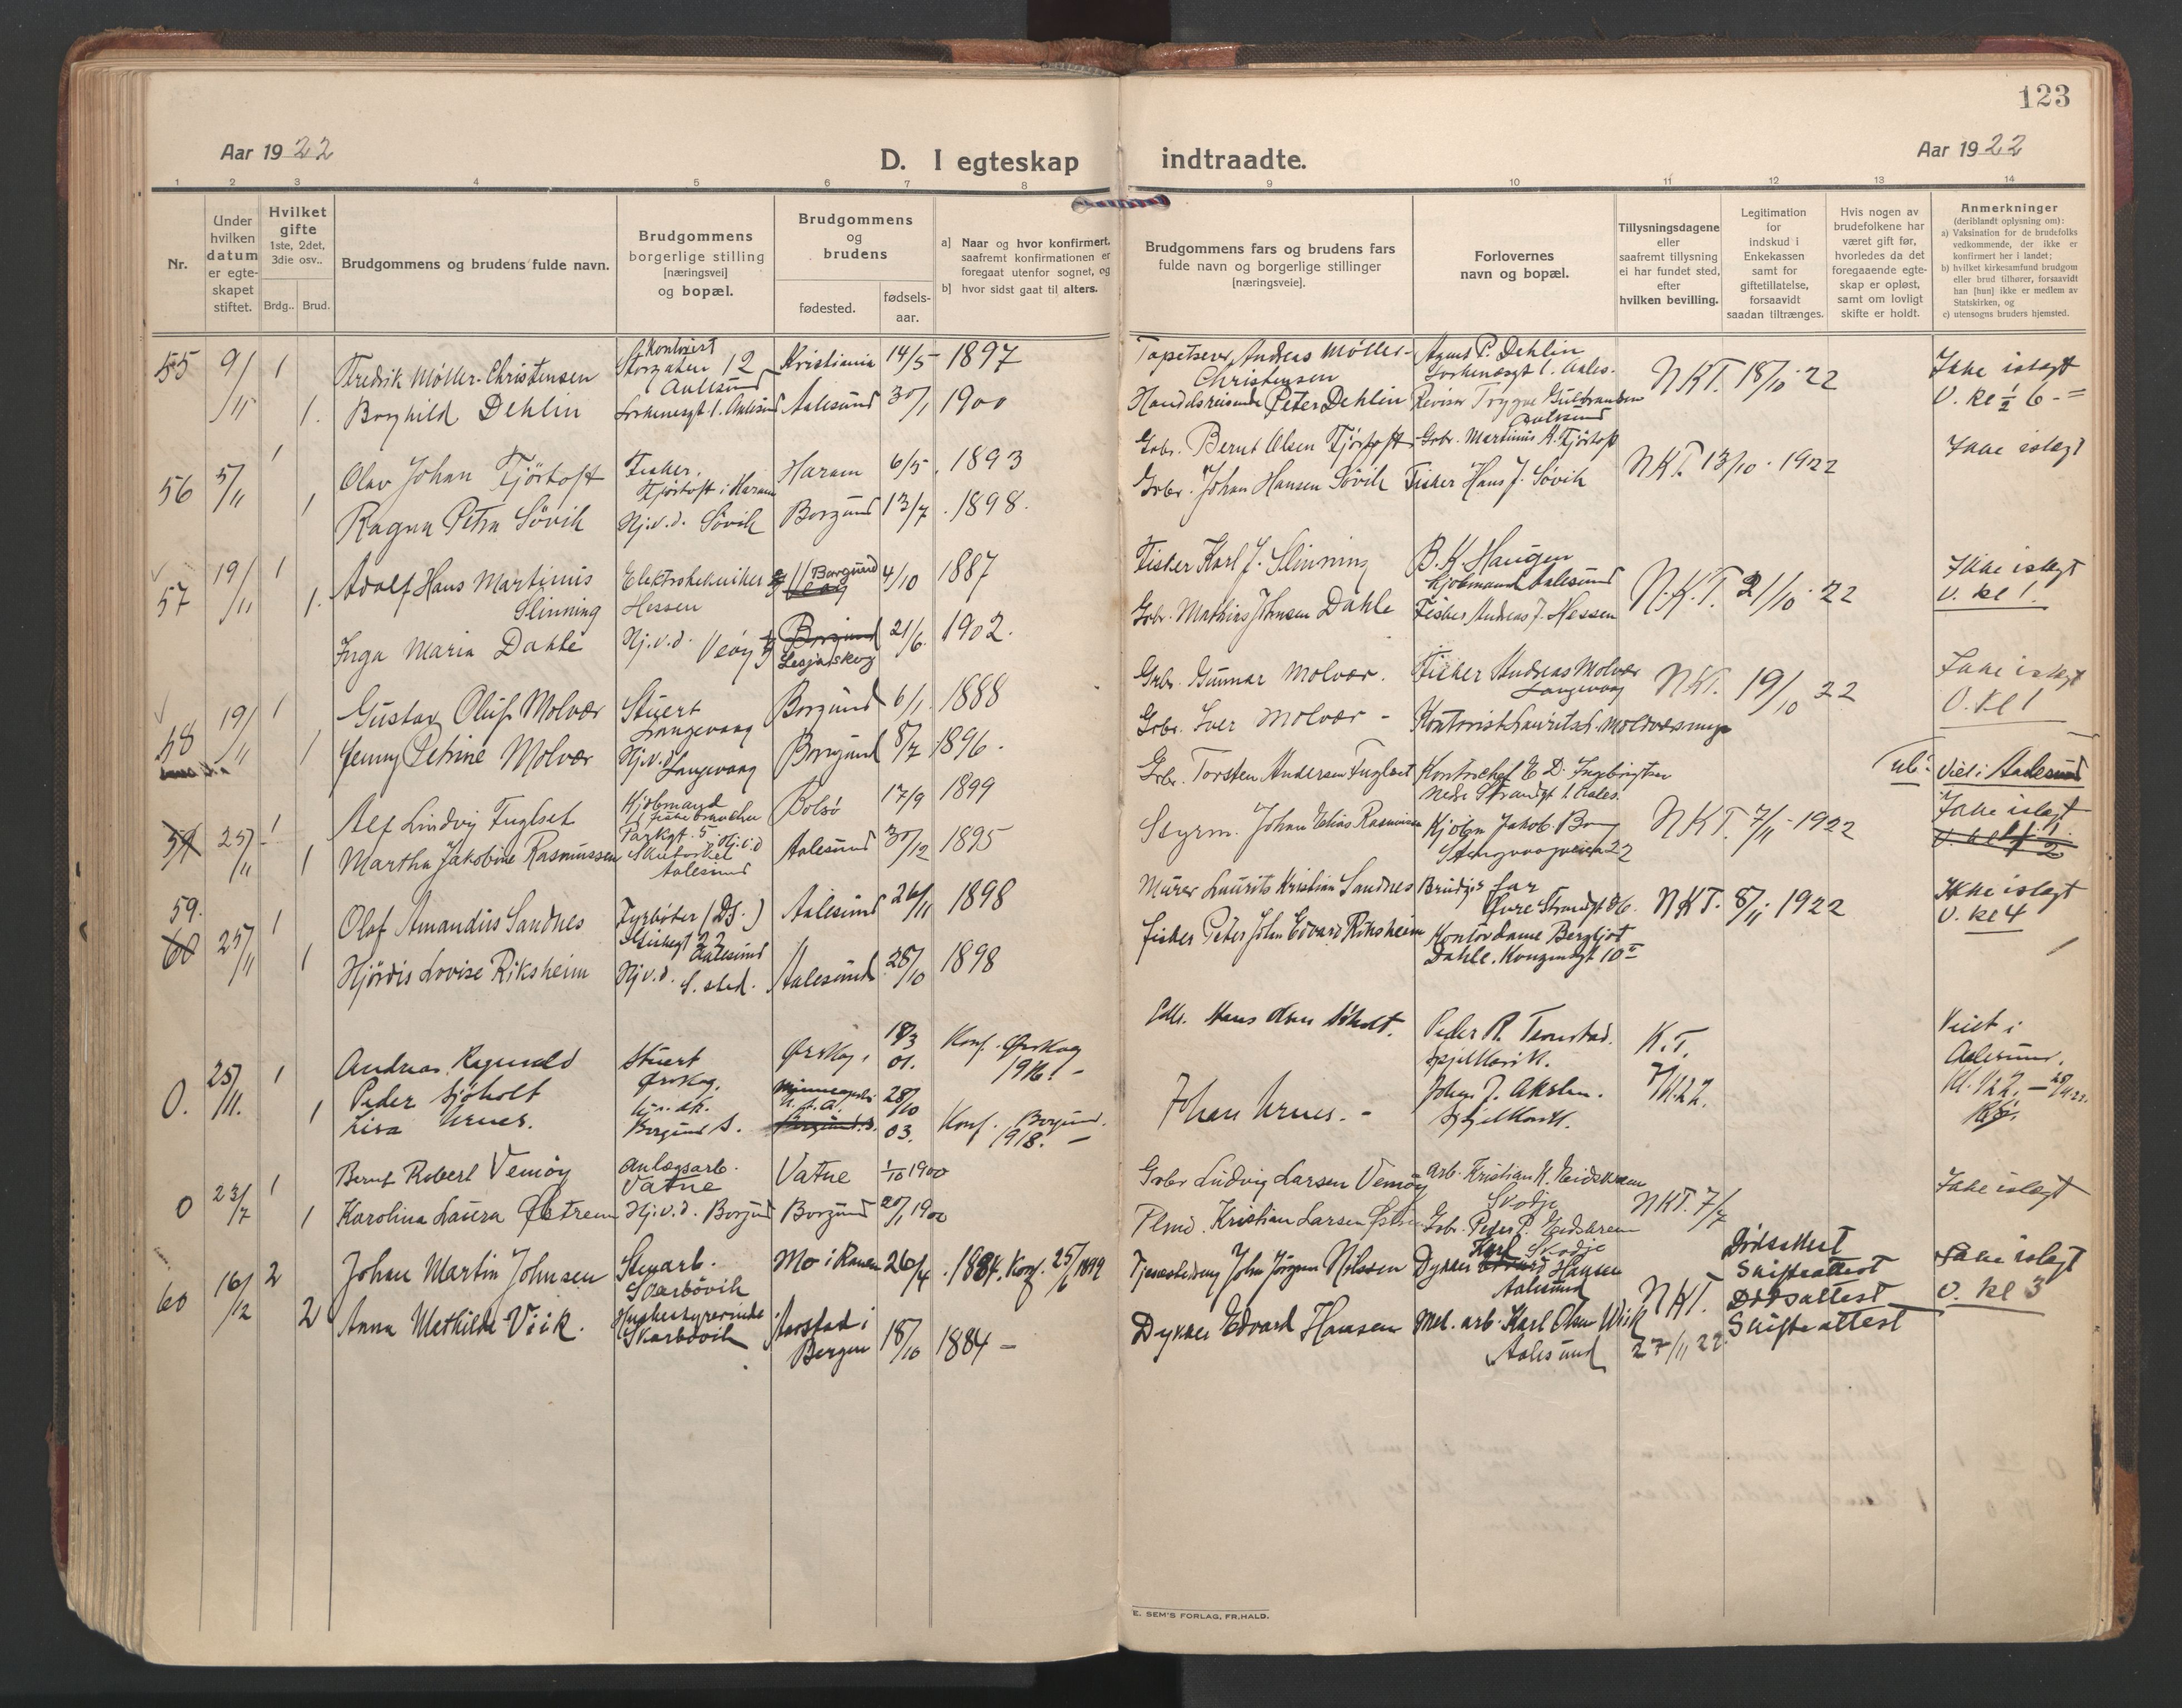 123
Aar 1922
D. I egteskap indtraadte.
Aar 1922
1 2 3 4 5 6 7 8 9 10 11 12 13 14
Nr.
Under hvilken datum er egte-skapet stiftet.
Hvilket gifte 1ste, 2det, 3die osv..
Brdg.. Brud.
Brudgommens og brudens fulde navn.
Brudgommens borgerlige stilling [næringsvei] og bopæl.
Brudgommens og brudens
fødested.
fødsels-aar.
a] Naar og hvor konfirmert, saafremt konfirmationen er foregaat utenfor sognet, og
b] hvor sidst gaat til alters.
Brudgommens fars og brudens fars fulde navn og borgerlige stillinger [næringsveie].
Forlovernes navn og bopæl.
Tillysningsdagene eller saafremt tillysning ei har fundet sted, efter hvilken bevilling.
Legitimation for indskud i Enkekassen samt for giftetillatelse, forsaavidt saadan tiltrænges.
Hvis nogen av brudefolkene har været gift før, hvorledes da det foregaaende egte-skap er opløst, samt om lovligt skifte er holdt.
Anmerkninger (deriblandt oplysning om):
a) Vaksination for de brudefolks vedkommende, der ikke er konfirmert her i landet;
b) hvilket kirkesamfund brudgom eller brud tilhører, forsaavidt han [hun] ikke er medlem av Statskirken, og
c) utensogns bruders hjemsted.
55 9/11 1 Fredrik Møller-Christensen Kontorist Storgaten 12 Aalesund Kristiania 14/5 1897 Tapetserer Andreas Møller-Christensen Agnes P. Dehlin Aales. NKT. 18/10 22 Ikke i slegt
1. Borghild Dehlin Aalesund Aalesund 30/1 1900 Handelsreisende Peter Dehlin Revisor Trygve Gulbrandsen Aalesund V. kl ½ 6
56 5/11 1 Olav Johan Fjørtoft Fisker. Fjørtoft i Haram Haram 6/5. 1893 Grbr. Bernt Olsen Fjørtoft Grbr. Martinus A. Fjørtoft NKT. 13/10. 1922 Ikke i slegt
1 Ragna Petra Søvik Hj.v.d. Søvik Borgund 13/7. 1898. Grbr. Johan Hansen Søvik Fisker Hans J. Søvik
57 19/11 1 Adolf Hans Martinus Slinning Elektrotekniker Hessen Borgund 4/10 1887 Fisker Karl J. Slinning B. K. Haugen Kjøbmand Aalesund N.K.T. 21/10 22 Ikke i slegt
1. Inga Maria Dahle Hj.v.d. Veøy Borgund Lesjaskog 21/6. 1902. Grbr. Mathias Johnsen Dahle Fisker Andreas J. Hessen V. kl 1.
58 19/11 1 Gustav Oluf Molvær Stuert Langevaag Borgund 6/1. 1888 Grbr. Gunnar Molvær. Fisker Andreas Molvær Langevaag NKT. 19/10 22 Ikke i slegt
1 Jenny Petrine Molvær Hj.v.d. Langevaag Borgund 8/7 1896. Grbr. Iver Molvær - Kontorist V. kl 1
59 25/11 1 Alf Lindvig Fuglset Kjøbmand Parkgt. 5 Bolsø 17/9 1899 Grbr. Torsten Andersen Fuglset Kontorchef E. D. Ingebrigtsen Nedre Strandgt 1 Aales. Viet i Aalesund
1 Martha Jakobine Rasmussen Hj.v.d. Aalesund Aalesund 30/12 1895 Styrm. Johan Elias Rasmussen Kjøbm Jakob Steinvaagveien 22 NKT. 7/11 - 1922 Ikke i slegt
59.
60 25/11 1 Olaf Amandus Sandnes Fyrbøter (DS.) Aalesund Aalesund 26/11 1898 Murer Laurits Kristian Sandnes Brudg. far Øvre Strandgt 86. NKT. 8/11 1922 Ikke i slegt
1 Hjørdis Lovise Riksheim Hj.v.d. S. sted. Aalesund 28/10 1898 Fisker Peter Johan Edvard Riksheim Kontordame Bergljot Dahle. Kongensgt 10 V. kl 4
0. 25/11. 1 Andreas Ragnvald Peder Sjøholt Stuert Ørskog. Ørskog. 18/3 01. Konf. Ørskog 1916. - Peder R. Tennstad. Spjelkavik. K.T. Viet i Aalesund.
1 Lisa Urnes. Borgund S. Minneapolis U.S.A. 28/10 03. Konf. Borgund. 1918. - Johan Urnes. - Johan J. Akslen. Spjelkavik. 7/11.22.
0 23/7 1 Bernt Robert Vemøy Anlægsarb. Vatne Vatne 1/10 1900 Grbr Ludvig Larsen Vemøy Arb. Kristian K. Eidskrem Skodje NKT. 7/7 Ikke i slegt
1 Karolina Laura Østrem Hj.v.d. Borgund Borgund 20/1 1900 Kristian Larsen Grbr. Peder P. Eidskrem Skodje
60 16/12 2 Johan Martin Johnsen Stenarb. Skarbøvik Mo i Ranen 26/4. 1884. Konf. 25/6 1899 Johan Jørgen Nilssen Dykker Karl Hansen Aalesund NKT. Dødsattest Skifteattest Ikke i slegt
2 Anna Mathilde Viik. Husbestyrerinde Skarbøvik Aarstad i Bergen 18/10 1884 - Dykker Edvard Hansen Mek. arb. Karl Olsen Wiik Aalesund 27/11 22. Dødsattest Skifteattest V. kl 3
E. SEM'S FORLAG, FR.HALD.